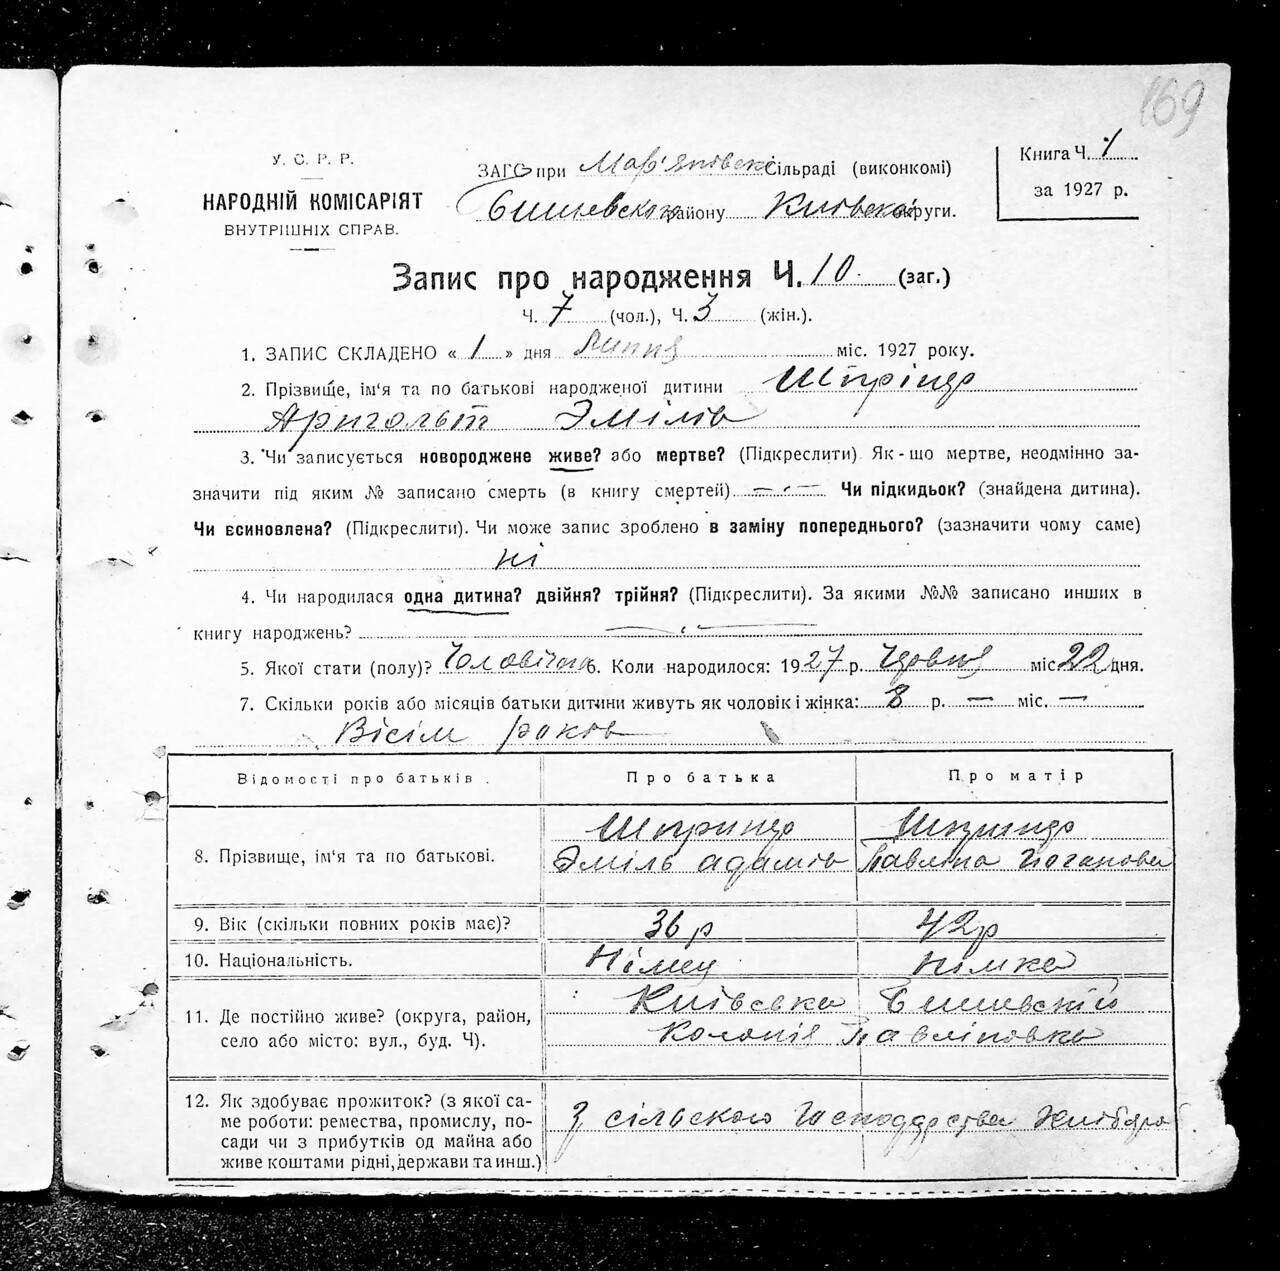 169
У. С. Р. Р.
НАРОДНІЙ КОМІСАРІЯТ
ВНУТРІШНІХ СПРАВ.
ЗАГС при Мар'янівск Сільраді (виконкомі)
району Київской округи.
Книга Ч. 1
за 1927 р.
Запис про народження Ч. 10 (заг.)
Ч. 7 (чол.), Ч. 3 (жін.).
1. ЗАПИС СКЛАДЕНО « 1 » дня Липня міс. 1927 року.
2. Прізвище, ім'я та по батькові народженої дитини Шпріндр
Арнгольт Эмілів
3. Чи записується новороджене живе? або мертве? (Підкреслити) Як-що мертве, неодмінно за-
значити під яким № записано смерть (в книгу смертей) — Чи підкидьок? (знайдена дитина).
Чи єсиновлена? (Підкреслити). Чи може запис зроблено в заміну попереднього? (зазначити чому саме)
ні
4. Чи народилася одна дитина? двійня? трійня? (Підкреслити). За якими №№ записано инших в
книгу народжень?
5. Якої стати (полу)? Чоловічого 6. Коли народилося: 1927 р. Червня міс. 22 дня.
7. Скільки років або місяців батьки дитини живуть як чоловік і жінка: 8 р. — міс. —
Вісім років
Відомості про батьків.
Про батька
Про матір
8. Прізвище, ім'я та по батькові.
Эміль адамів
Павліна Иоганова
9. Вік (скільки повних років має)?
36 р
42 р
10. Національність.
Німец
Німка
11. Де постійно живе? (округа, район,
село або місто: вул., буд. Ч).
Київська
Колонія Павліновка
12. Як здобуває прожиток? (з якої са-
ме роботи: ремества, промислу, по-
сади чи з прибутків од майна або
живе коштами рідні, держави та инш.)
З сільского Господарства Хлібороб